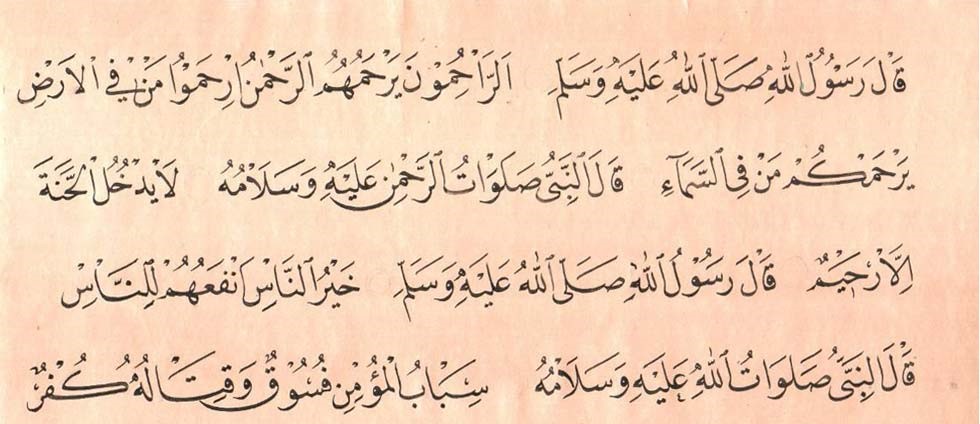 قَالَ رَسُولُ اللهِ صَلَّى اللهُ عَلَيْهِ وَسَلَّمَ اَلرَّاحِمُونَ يَرْحَمُهُمُ الرَّحْمٰنُ اِرْحَمُوا مَنْ فِي الْاَرْضِ
يَرْحَمْكُمْ مَنْ فِي السَّمَآءِ قَالَ النَّبِيُّ صَلَوَاتُ الرَّحْمٰنِ عَلَيْهِ وَسَلَامُهُ لَا يَدْخُلُ الْجَنَّةَ
اِلَّا رَحِيْمٌ قَالَ رَسُوْلُ اللهِ صَلَّى اللهُ عَلَيْهِ وَسَلَّمَ خَيْرُ النَّاسِ اَنْفَعُهُمْ لِلنَّاسِ
قَالَ النَّبِيُّ صَلَوَاتُ اللهِ عَلَيْهِ وَسَلَامُهُ سِبَابُ الْمُؤْمِنِ فُسُوْقٌ وَقِتَالُهُ كُفْرٌ